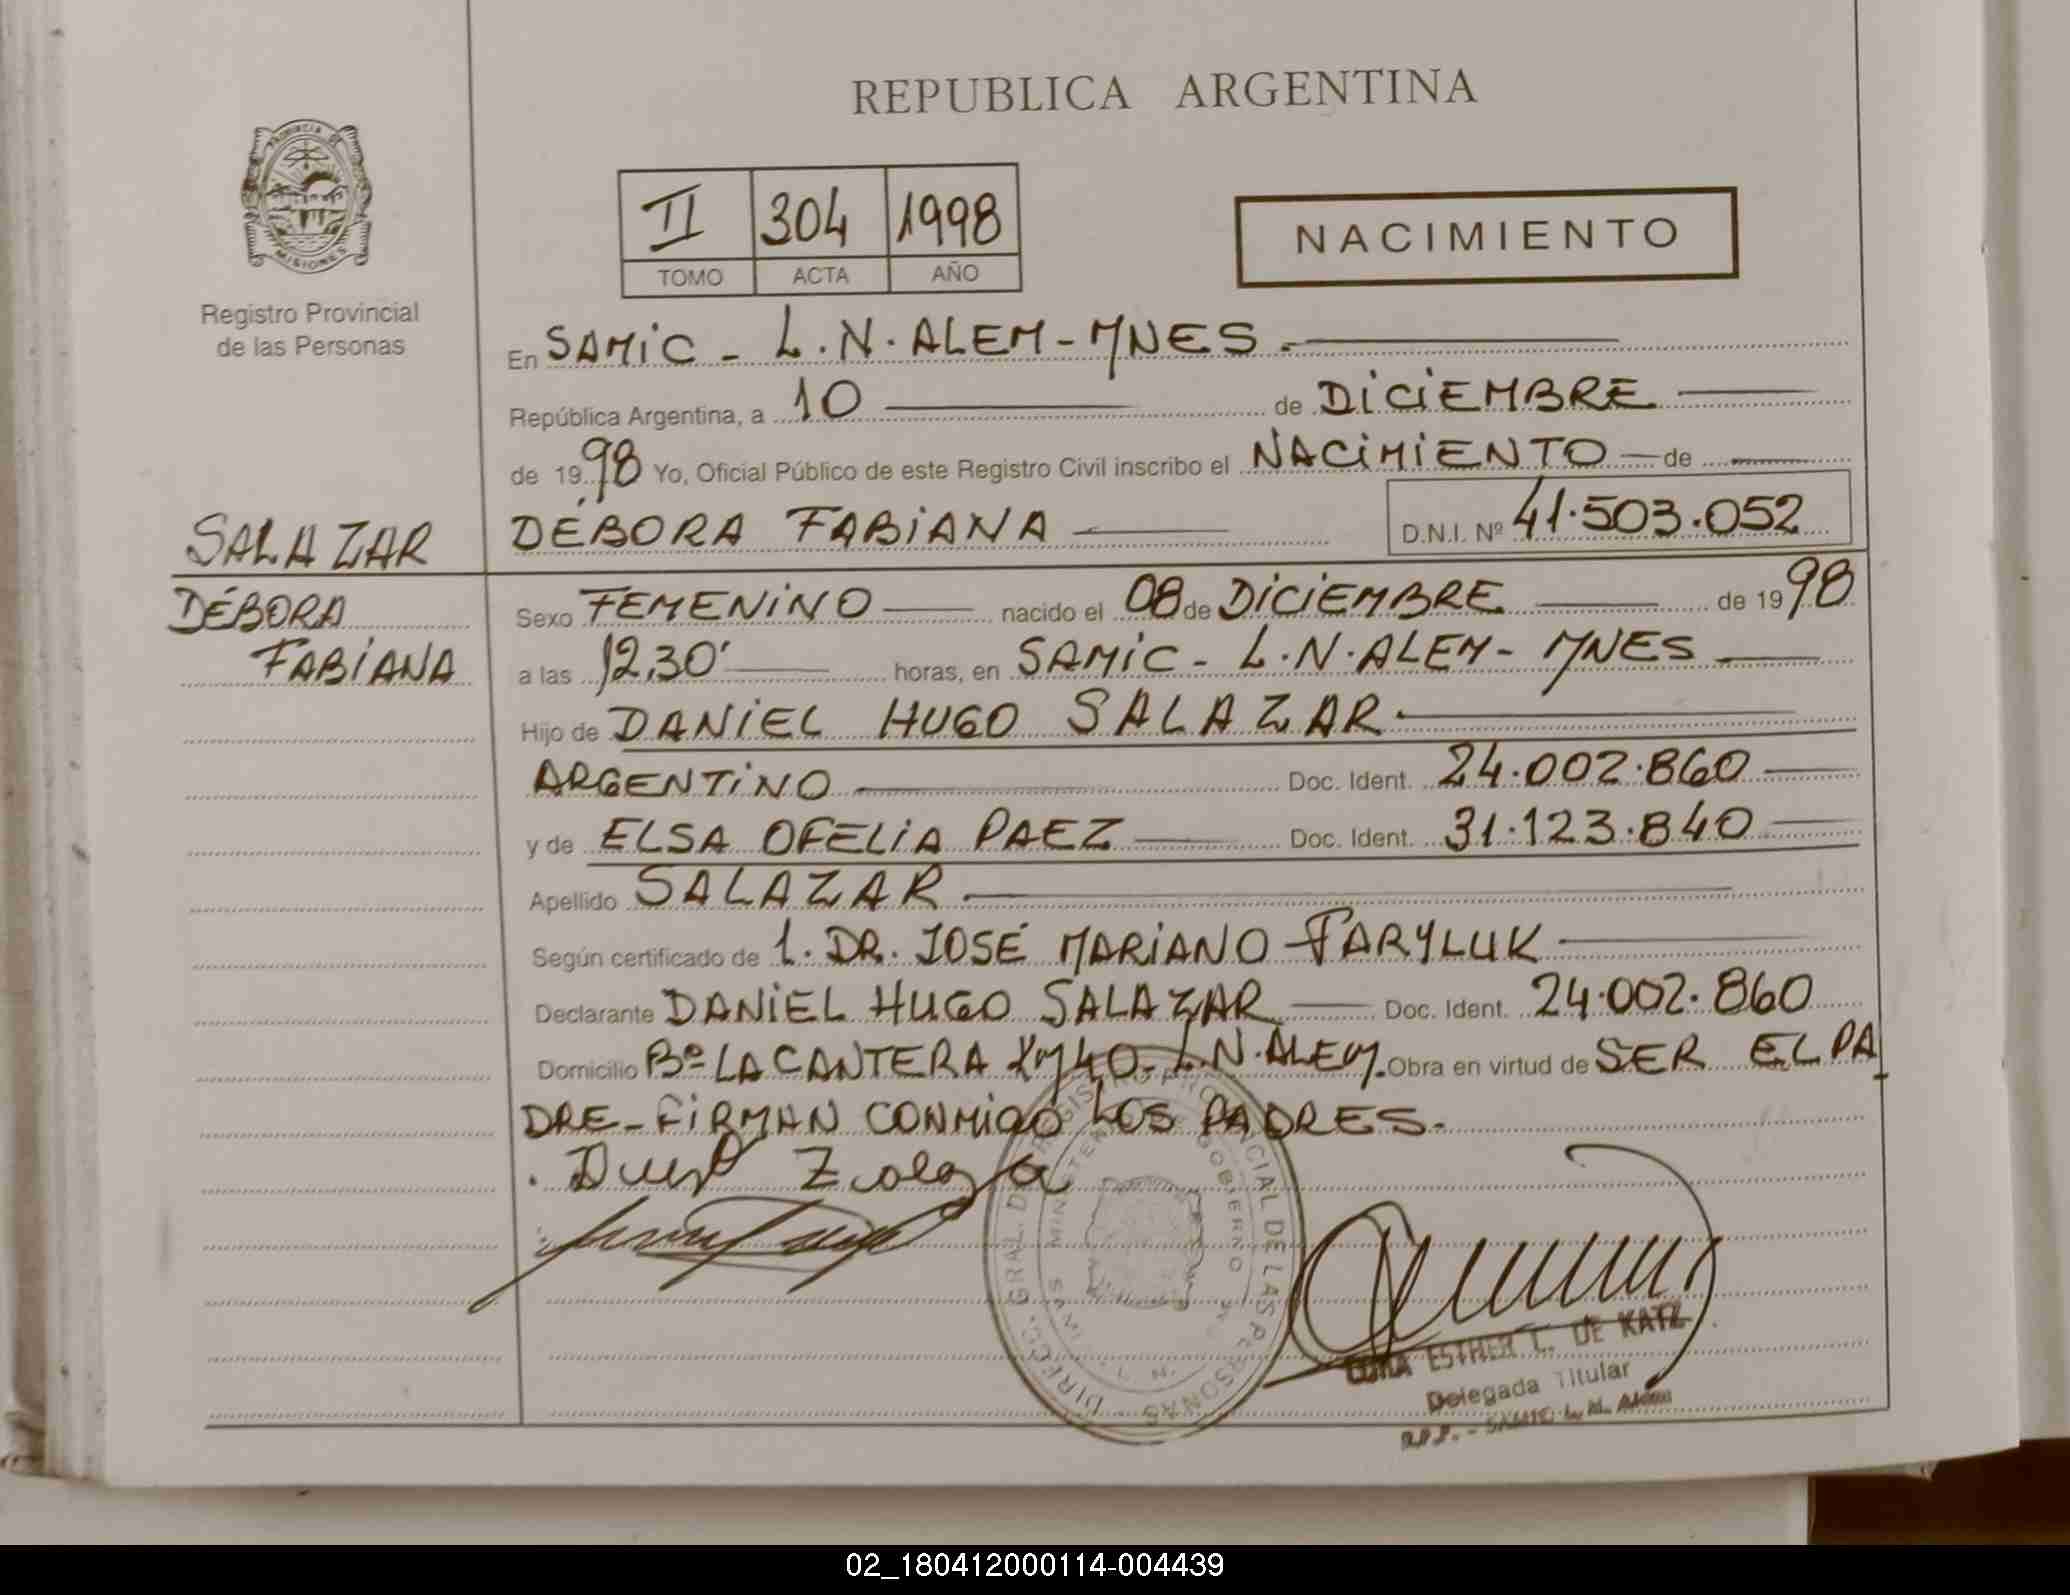 REPUBLICA ARGENTINA
PROVINCIA DE
MISIONES
Registro Provincial
de las Personas
II 304 1998
TOMO ACTA AÑO
NACIMIENTO
En SAMIC - L.N. ALEM - MNES.
República Argentina, a 10 de DICIEMBRE
de 1998 Yo, Oficial Público de este Registro Civil inscribo el NACIMIENTO de
SALAZAR
DÉBORA FABIANA D.N.I. Nº 41.503.052
DÉBORA
FABIANA
Sexo FEMENINO nacido el 08 de DICIEMBRE de 1998
a las 12,30' horas, en SAMIC - L.N. ALEM - MNES
Hijo de DANIEL HUGO SALAZAR.
ARGENTINO Doc. Ident. 24.002.860
y de ELSA OFELIA PAEZ Doc. Ident. 31.123.840
Apellido SALAZAR
Según certificado de 1. DR. JOSÉ MARIANO FARYLUK
Declarante DANIEL HUGO SALAZAR Doc. Ident. 24.002.860
Domicilio Bº LA CANTERA KM 40 - L.N. ALEM. Obra en virtud de SER EL PA
DRE - FIRMAN CONMIGO LOS PADRES.
DIREC. GRAL. DE REGISTRO PROVINCIAL DE LAS PERSONAS
ESTHER L. DE KATZ
Delegada Titular
02_180412000114-004439